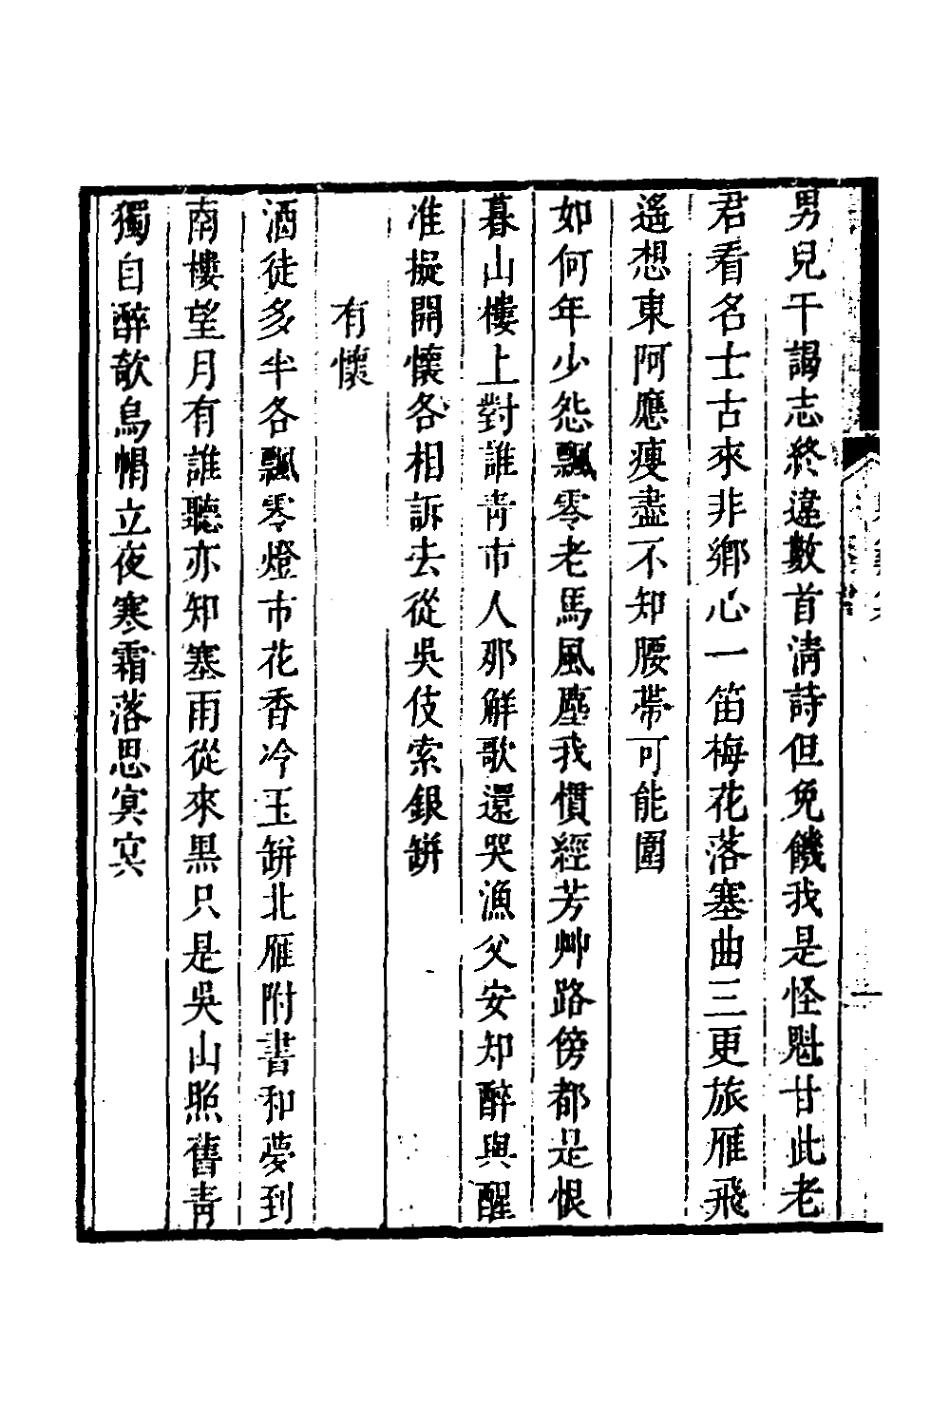 男兒干謁志終違數首清詩但免饑我是怪魁甘此老
君看名士古來非鄉心一笛梅花落塞曲三更旅雁飛
遙想東阿應瘦盡不知腰帶可能圍
如何年少怨飄零老馬風塵我慣經芳艸路傍都是恨
暮山樓上對誰青市人那解歌還哭漁父安知醉與醒
准擬開懷各相訴去從吳伎索銀缾
有懷
酒徒多半各飄零燈市花香冷玉缾北雁附書和夢到
南樓望月有誰聽亦知塞雨從來黑只是吳山照舊青
獨自醉欹烏帽立夜寒霜落思寞寞